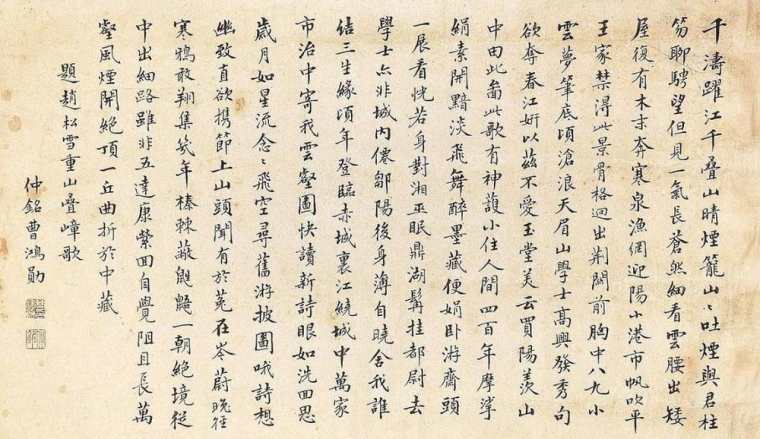 千濤躍江千叠山晴煙籠山〻吐煙與君柱
笏聊騁望但見一氣長蒼然細看雲腰出矮
屋復有木末奔寒泉漁網迎陽小港市帆吹平
王家禁得此景骨格迥出荆關前胸中八九小
雲夢筆底頃滄浪天眉山學士高興發秀句
欲奪春江妍以茲不愛玉堂美云買陽羡山
中田此畵此歌有神護小住人間四百年摩挲
絹素開黯淡飛舞醉墨藏便娟卧游齋頭
一展看恍若身對湘巫眠鼎湖髯挂都尉去
學士亦非城內僊鄒陽後身薄自曉舍我誰
結三生緣頃年登臨赤城裏江繞城中萬家
市治中寄我雲壑圖快讀新詩眼如洗回思
歲月如星流念〻飛空尋舊游披圖哦詩想
幽致直欲携節上山頭聞有於菟在岑蔚晚往
寒鴉敢翔集幾年榛棘蔽鼪鼯一朝絕境從
中出細路雖非五達康縈回自覺阻且長萬
壑風煙開絕頂一丘曲折於中藏
題趙松雪重山疊嶂歌
仲銘曹鴻勛